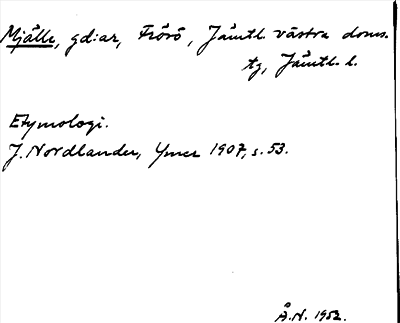 Mjälle, gd:ar, Frösö, Jämtl. västra doms.
tg, Jämtl. l.
Etymologi.
J. Nordlander, Ymer 1907, s. 53.
Å.N. 1952.